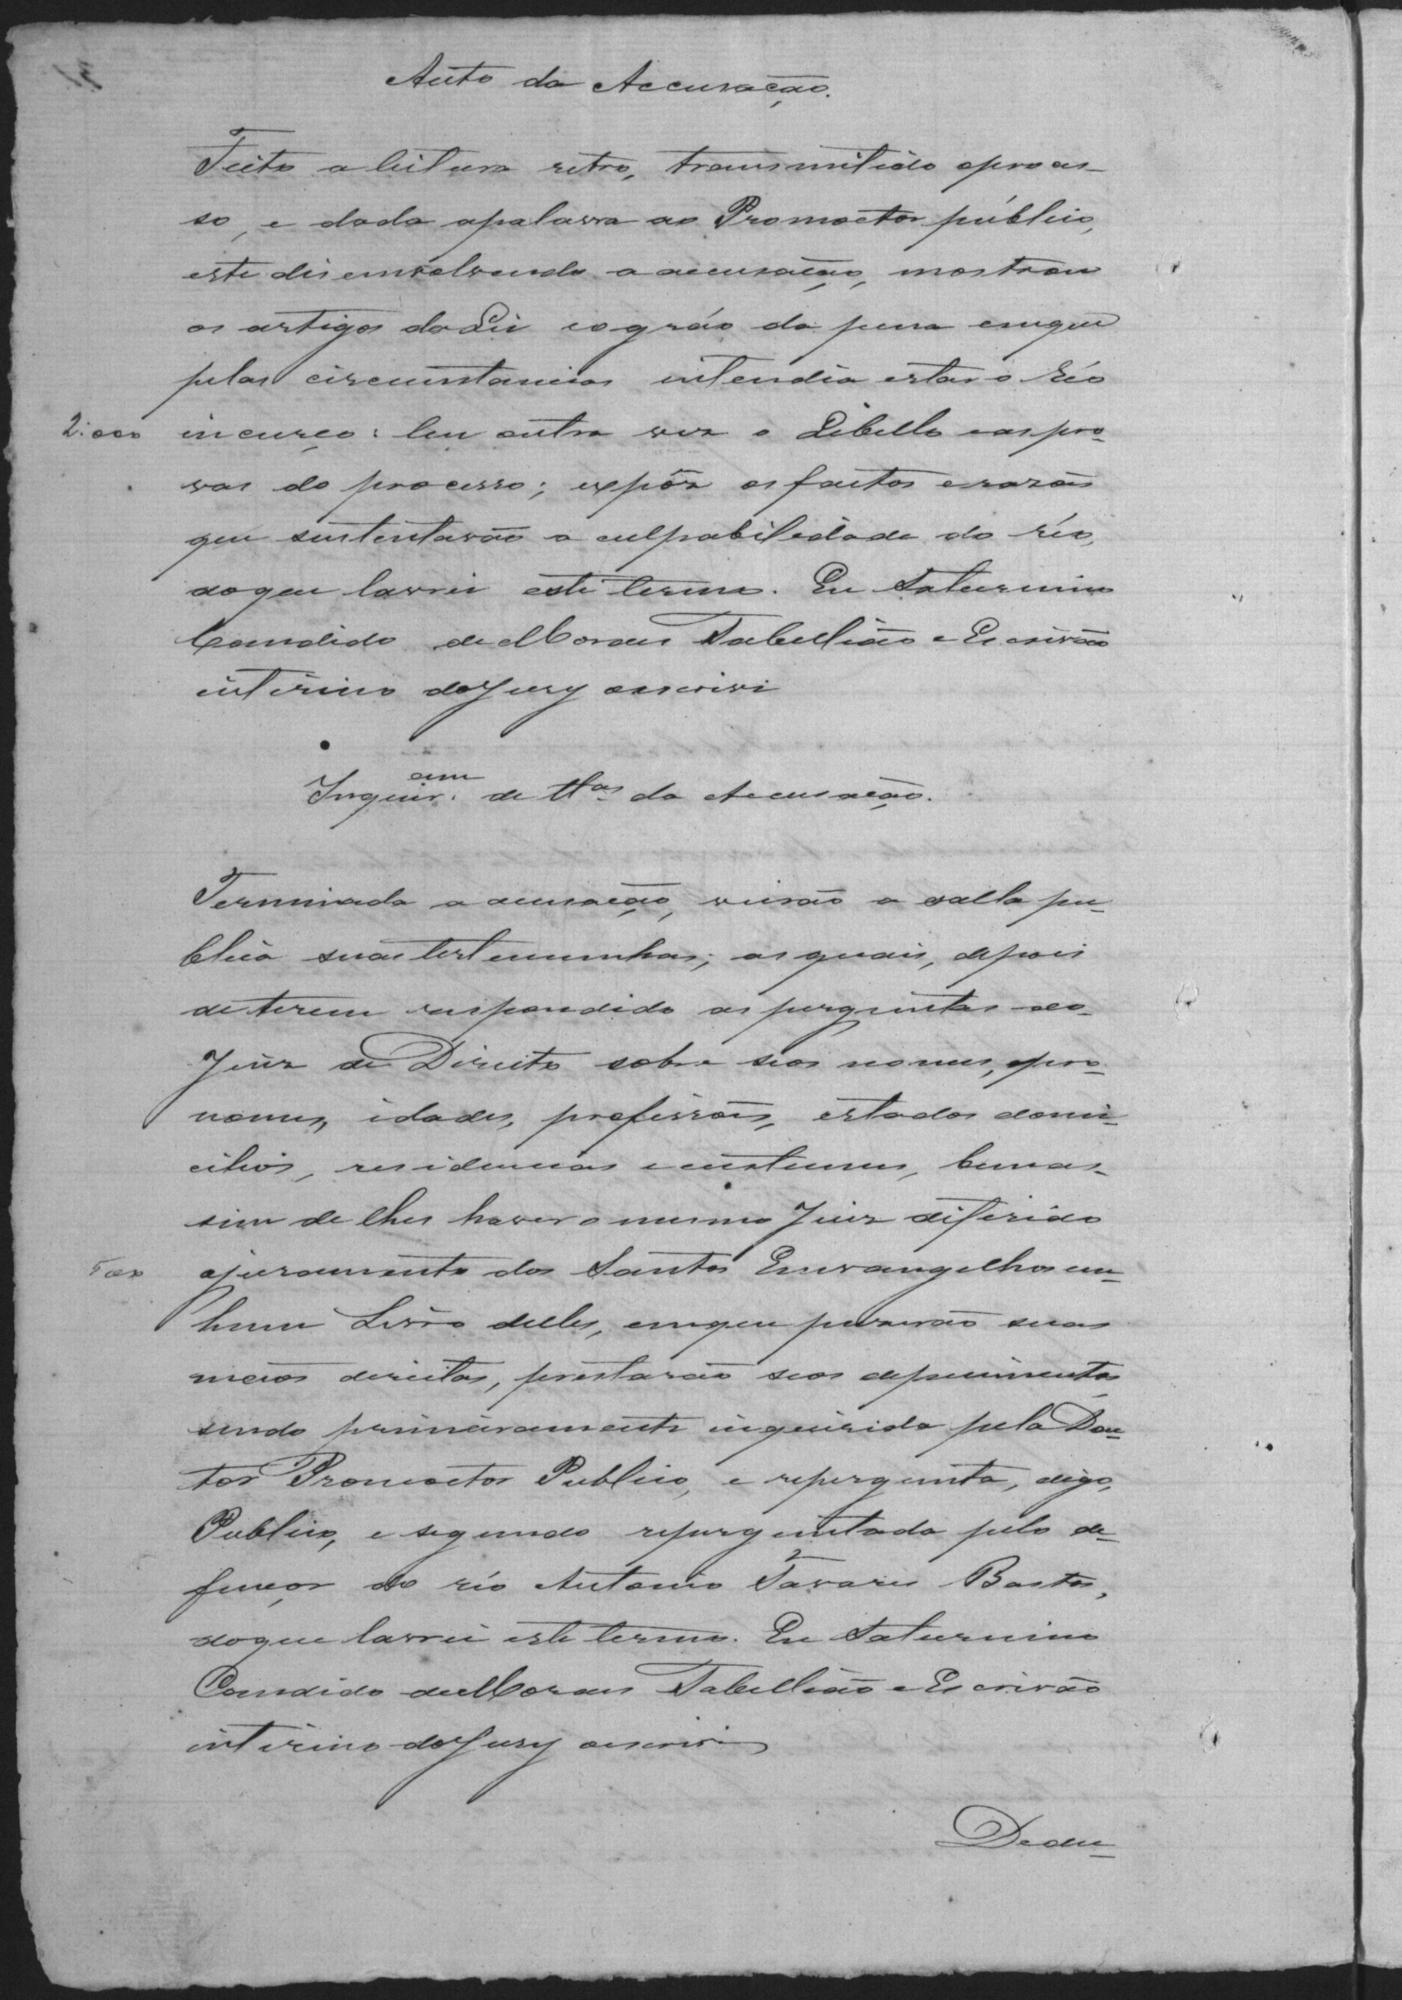 Auto da Accusação.
Feita a leitura retro, transmitido o proces-
so, e dada apalavra ao Promoctor público,
este disemvolvendo a accusação, mostrou
os artigos da Lei e o gráo da pena emque
pelas circumstancias intendia estar o réo
2:000 incurço: leu outra vez o Libello e as pro-
vas do processo; expôz os factos e razaõis
que sustentavão a culpabilidade do réo,
doque lavrei este termo. Eu Saturnino
Candido de Moraes Tabellião e Escrivão
interino do Jury oescrivi
Inquir.am de ttas da Accusação.
Terminada a accusação, vierão a salla pu-
blica suas testemunhas; as quais, depois
de terem respondido as perguntas do
Juiz de Direito sobre seos nomes, pro-
nomes, idades, profissões, estados domi-
cilios, residencias e custumes, bemas-
sim de lhes haver o mesmo Juiz diferido
ojuramento dos Santos Envangelhos em
hum Livro delles, emque puzerão suas
mãos direitas, prestarão seos depuimentos
sendo primeiramente inquirida pelo Dou-
tor Promoctor Publico, e repergunta, digo,
Publico, e segundo reperguntada pelo de-
fençor do réo Antonio Tavares Bastos,
doque lavrei este termo. Eu Saturnino
Candido de Moraes Tabellião e Escrivão
interino do Jury oescrivi
Dedu-